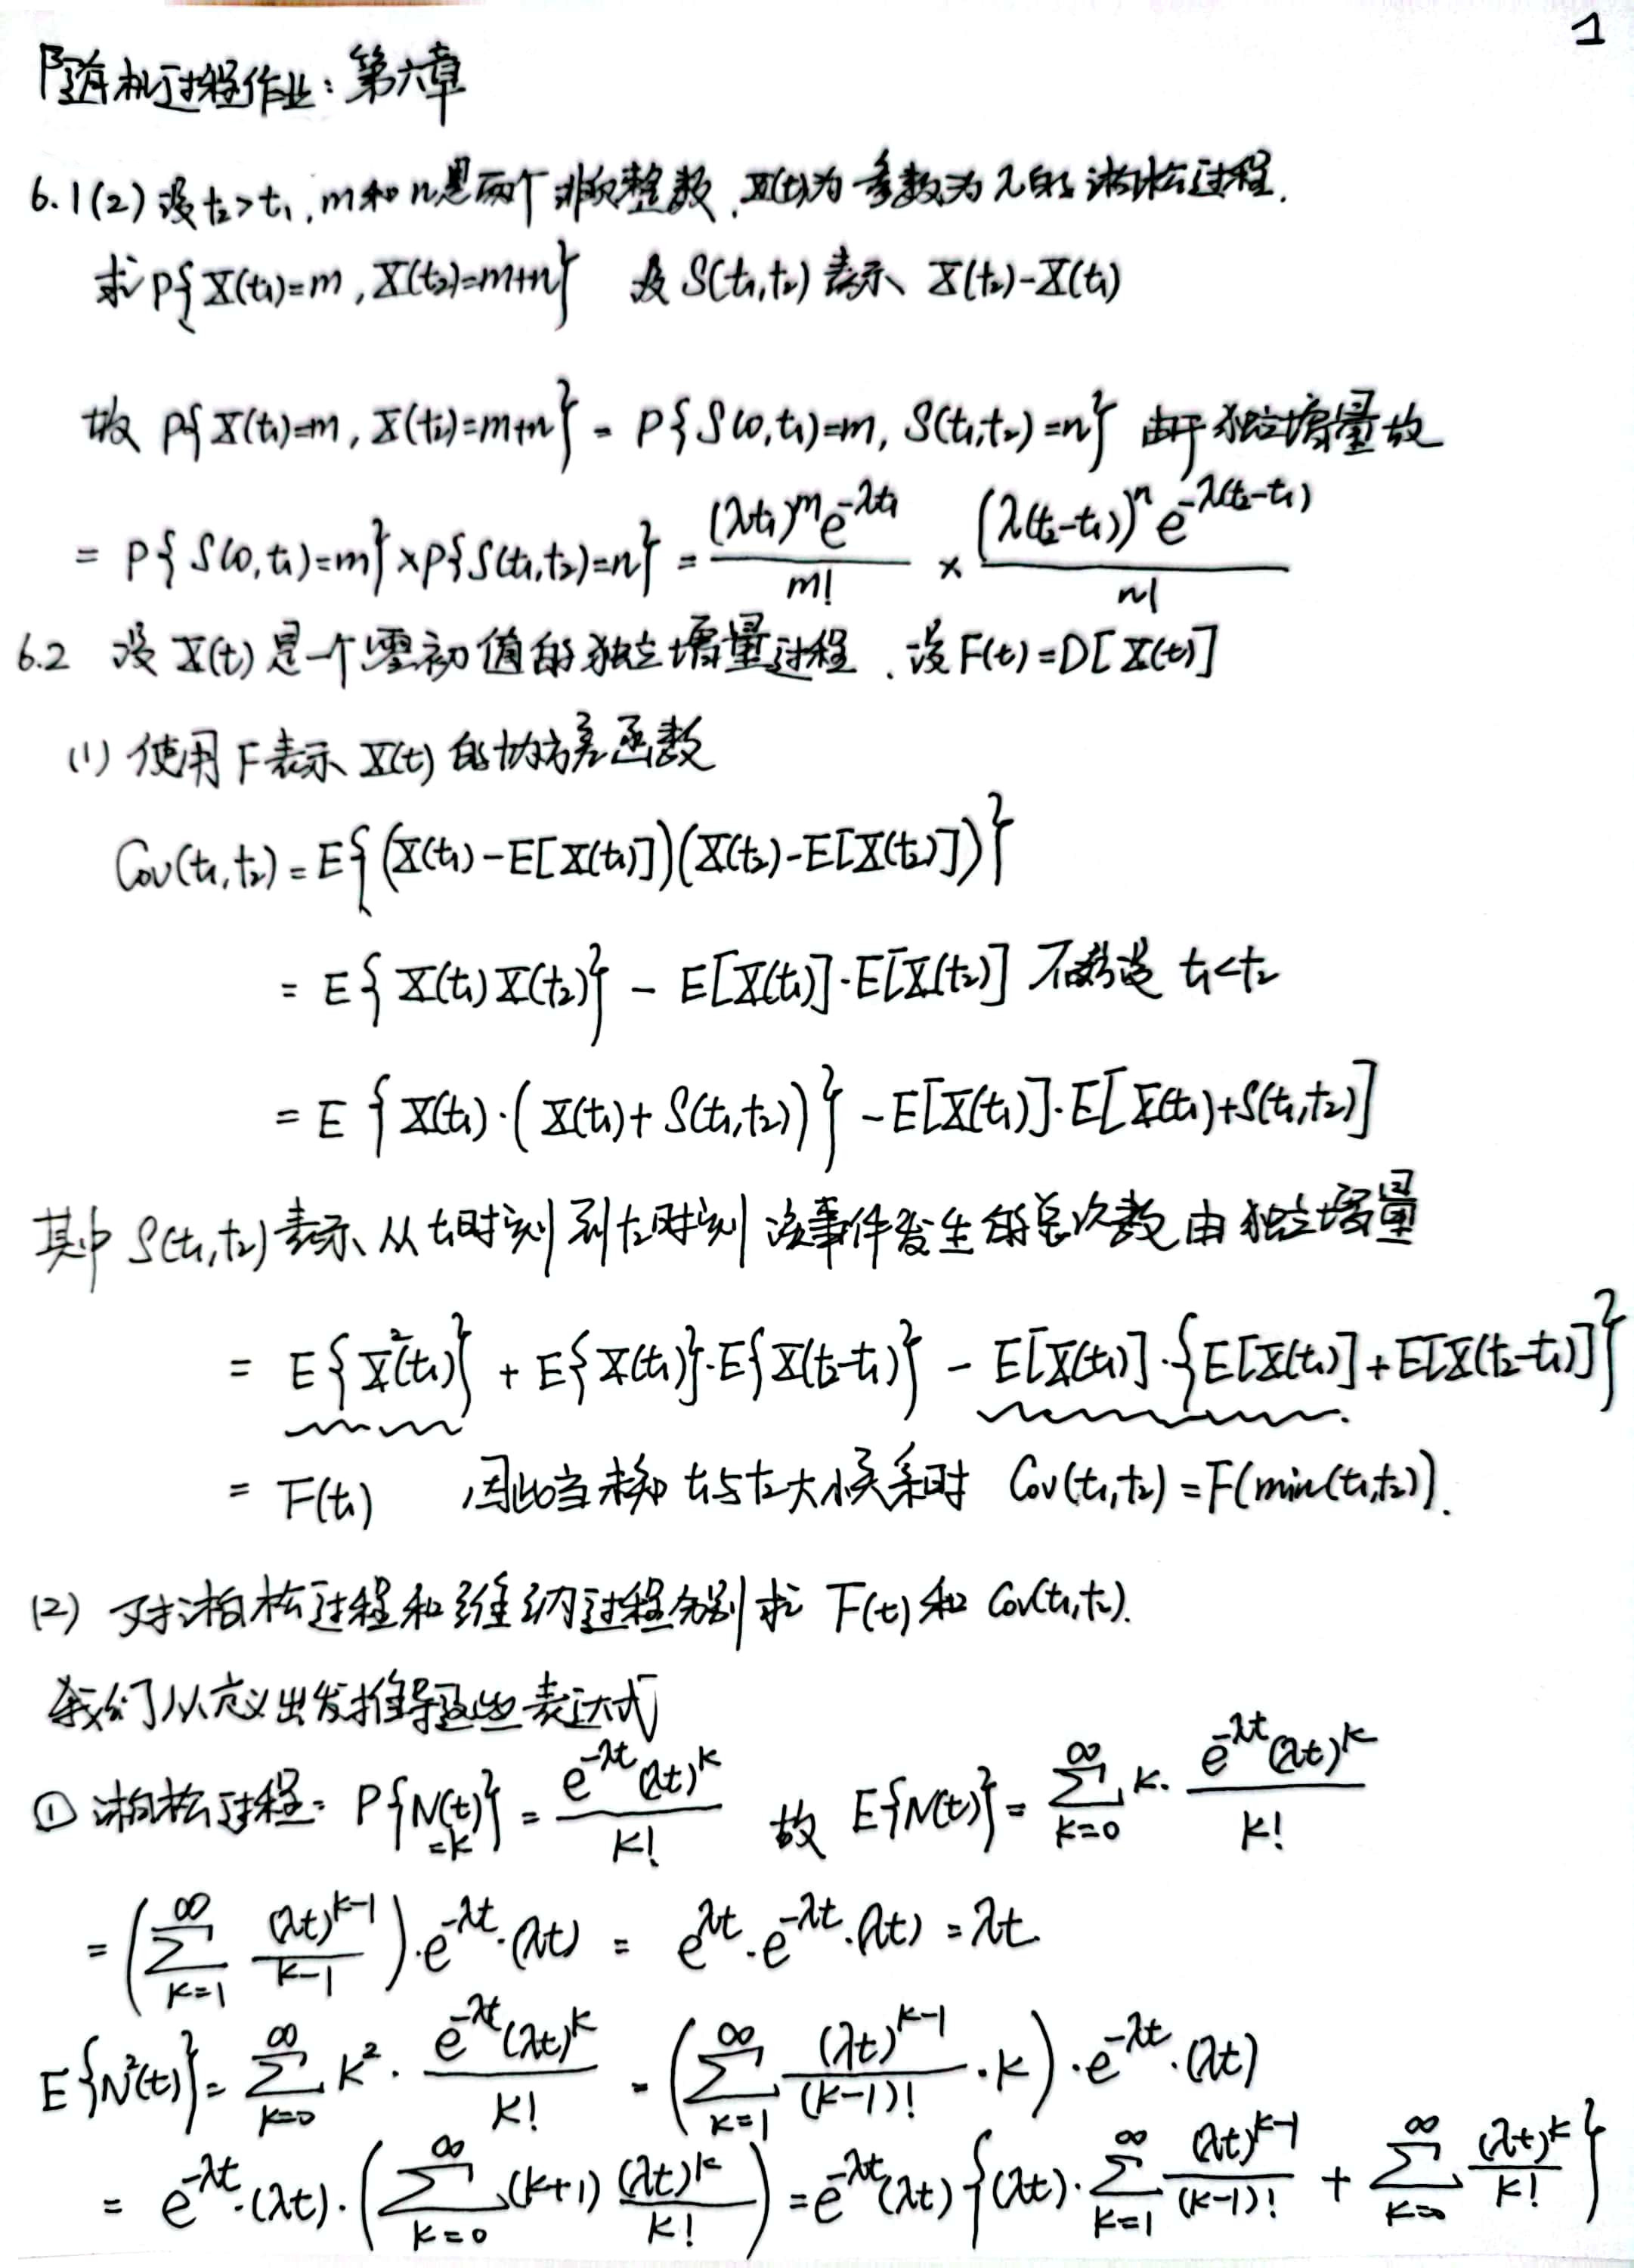 1
随机过程作业：第六章
6.1(2) 设 t₂>t₁, m和n是两个非负整数, X(t)为参数为λ的泊松过程.
求 P{X(t₁)=m, X(t₂)=m+n} 及 S(t₁,t₂) 表示 X(t₂)-X(t₁)
故 P{X(t₁)=m, X(t₂)=m+n} = P{S(0,t₁)=m, S(t₁,t₂)=n} 由于独立增量故
= P{S(0,t₁)=m}×P{S(t₁,t₂)=n} = (λt₁)^m e^{-λt₁} / m! × (λ(t₂-t₁))^n e^{-λ(t₂-t₁)} / n!
6.2 设 X(t) 是一个零初值的独立增量过程. 设 F(t)=D[X(t)]
(1) 使用 F表示 X(t) 的协方差函数
Cov(t₁,t₂) = E{(X(t₁)-E[X(t₁)])(X(t₂)-E[X(t₂)])}
= E{X(t₁)X(t₂)} - E[X(t₁)]·E[X(t₂)] 不妨设 t₁<t₂
= E{X(t₁)·(X(t₁)+S(t₁,t₂))} - E[X(t₁)]·E[X(t₁)+S(t₁,t₂)]
其中 S(t₁,t₂) 表示从 t₁时刻到t₂时刻 该事件发生的总次数 由独立增量
= E{X²(t₁)} + E{X(t₁)}·E{X(t₂-t₁)} - E[X(t₁)]·{E[X(t₁)]+E[X(t₂-t₁)]}
= F(t₁) 因此当未知 t₁与t₂大小关系时 Cov(t₁,t₂)=F(min(t₁,t₂)).
(2) 对泊松过程和维纳过程分别求 F(t) 和 Cov(t₁,t₂).
我们从定义出发推导这些表达式
① 泊松过程: P{N(t)=k} = e^{-λt}(λt)^k / k! 故 E{N(t)} = ∑_{k=0}^{∞} k· e^{-λt}(λt)^k / k!
= (∑_{k=1}^{∞} (λt)^{k-1} / k-1)·e^{-λt}·(λt) = e^{λt}·e^{-λt}·(λt) = λt.
E{N²(t)} = ∑_{k=0}^{∞} k²· e^{-λt}(λt)^k / k! = (∑_{k=1}^{∞} (λt)^{k-1} / (k-1)! ·k)·e^{-λt}·(λt)
= e^{-λt}·(λt)·(∑_{k=0}^{∞} (k+1) (λt)^k / k!) = e^{-λt}(λt){(λt)·∑_{k=1}^{∞} (λt)^{k-1} / (k-1)! + ∑_{k=0}^{∞} (λt)^k / k!}